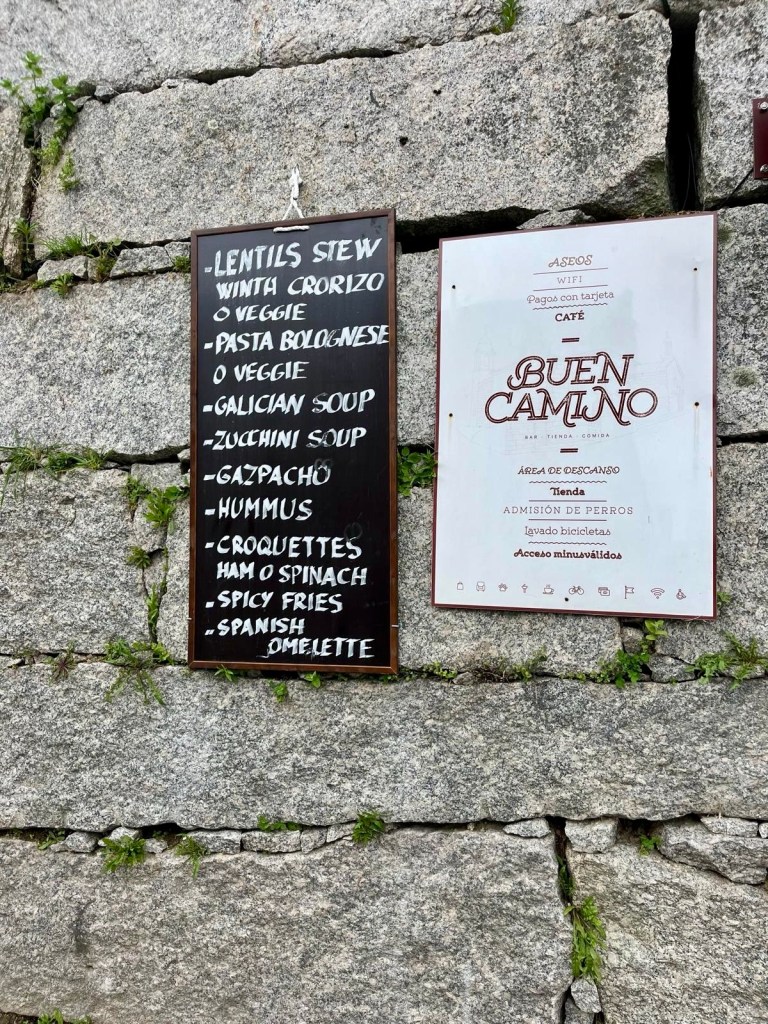 - LENTILS STEW
WINTH CRORIZO
O VEGGIE
- PASTA BOLOGNESE
O VEGGIE
- GALICIAN SOUP
- ZUCCHINI SOUP
- GAZPACHO
- HUMMUS
- CROQUETTES
HAM O SPINACH
- SPICY FRIES
- SPANISH
OMELETTE
ASEOS
WIFI
Pagos con tarjeta
CAFÉ
BUEN
CAMINO
BAR · TIENDA · COMIDA
ÁREA DE DESCANSO
Tienda
ADMISIÓN DE PERROS
Lavado bicicletas
Acceso minusválidos